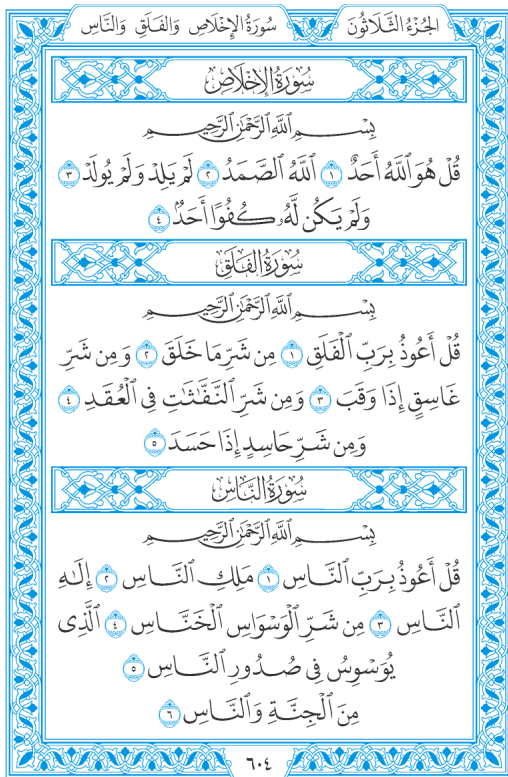 الجُزْءُ الثَّلَاثُونَ سُورَةُ الإِخْلَاصِ وَالفَلَقِ وَالنَّاسِ
سُورَةُ الإِخْلَاصِ
بِسْمِ ٱللَّهِ ٱلرَّحْمَٰنِ ٱلرَّحِيمِ
قُلْ هُوَ ٱللَّهُ أَحَدٌ ١ ٱللَّهُ ٱلصَّمَدُ ٢ لَمْ يَلِدْ وَلَمْ يُولَدْ ٣
وَلَمْ يَكُن لَّهُۥ كُفُوًا أَحَدٌۢ ٤
سُورَةُ الفَلَقِ
بِسْمِ ٱللَّهِ ٱلرَّحْمَٰنِ ٱلرَّحِيمِ
قُلْ أَعُوذُ بِرَبِّ ٱلْفَلَقِ ١ مِن شَرِّ مَا خَلَقَ ٢ وَمِن شَرِّ
غَاسِقٍ إِذَا وَقَبَ ٣ وَمِن شَرِّ ٱلنَّفَّٰثَٰتِ فِى ٱلْعُقَدِ ٤
وَمِن شَرِّ حَاسِدٍ إِذَا حَسَدَ ٥
سُورَةُ النَّاسِ
بِسْمِ ٱللَّهِ ٱلرَّحْمَٰنِ ٱلرَّحِيمِ
قُلْ أَعُوذُ بِرَبِّ ٱلنَّاسِ ١ مَلِكِ ٱلنَّاسِ ٢ إِلَٰهِ
ٱلنَّاسِ ٣ مِن شَرِّ ٱلْوَسْوَاسِ ٱلْخَنَّاسِ ٤ ٱلَّذِى
يُوَسْوِسُ فِى صُدُورِ ٱلنَّاسِ ٥
مِنَ ٱلْجِنَّةِ وَٱلنَّاسِ ٦
٦٠٤